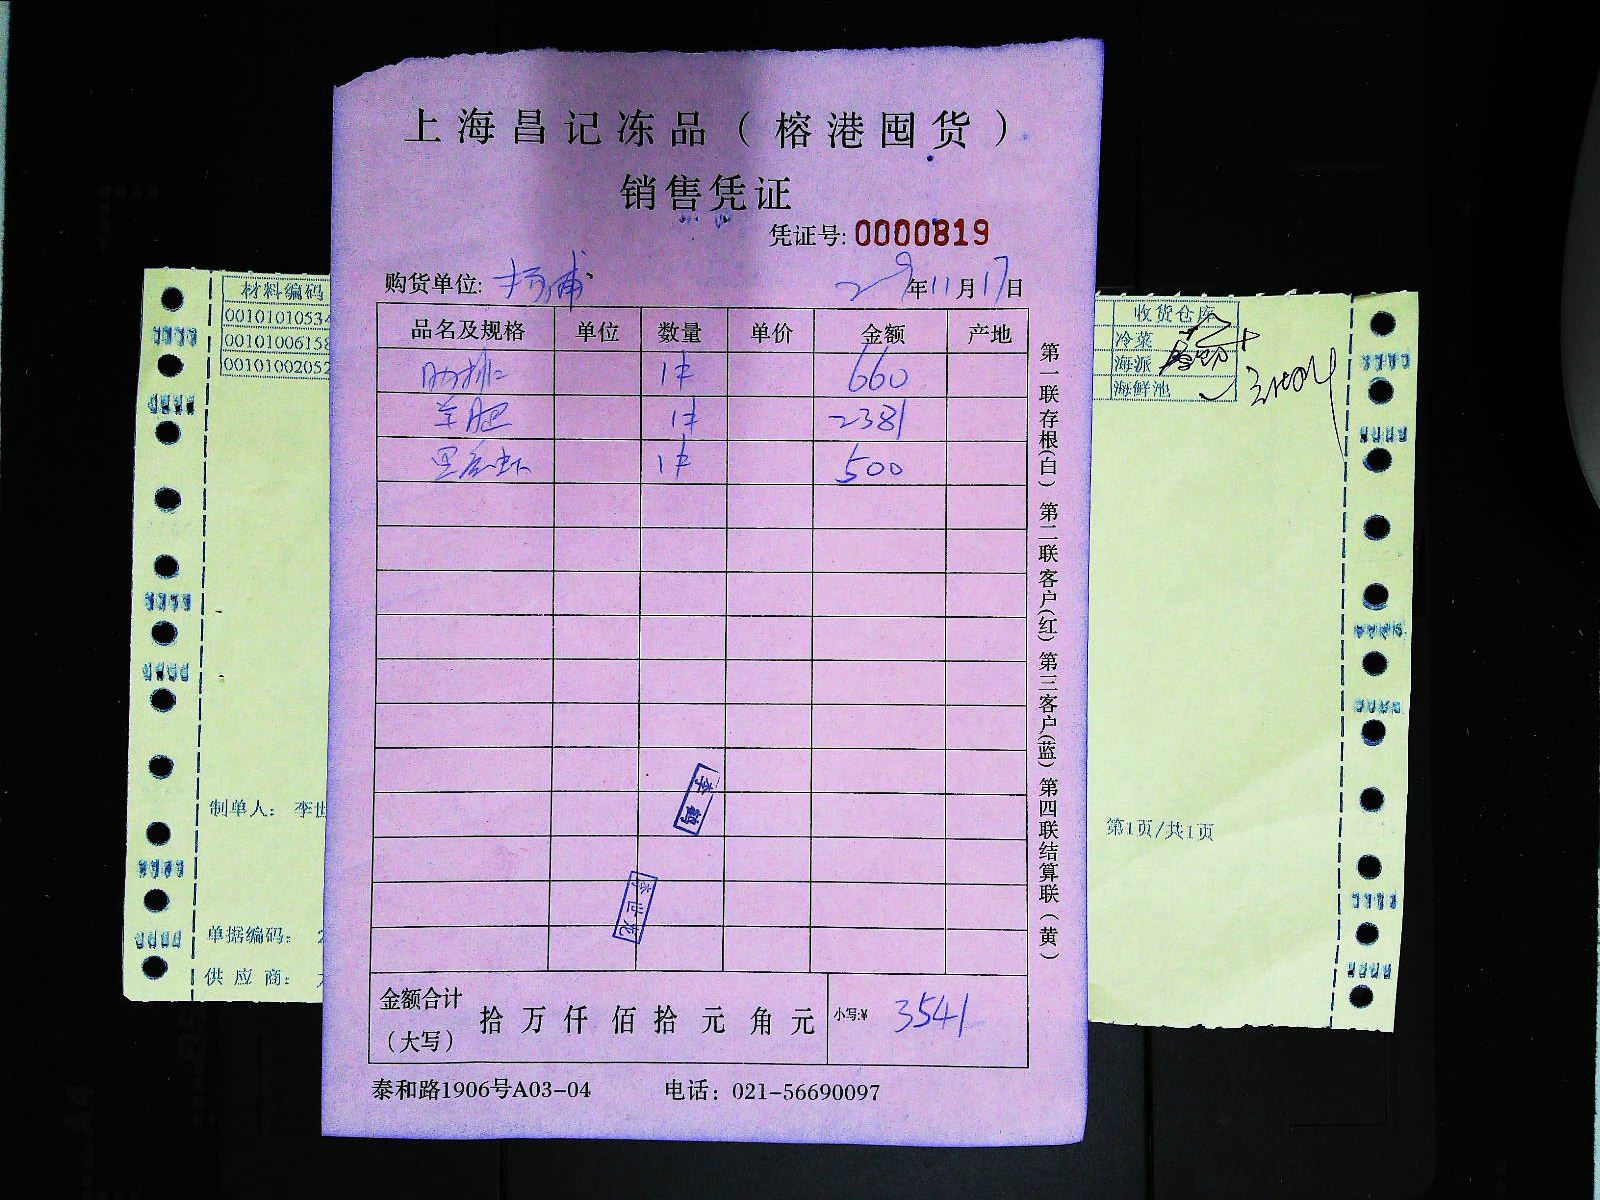 上海昌记冻品（榕港囤货）
销售凭证
凭证号: 0000819
购货单位: 杨浦
年11月17日
品名及规格 单位 数量 单价 金额 产地
肋排 1件 660
羊腿 1件 2381
1件 500
金额合计（大写） 拾 万 仟 佰 拾 元 角 元 小写:¥ 3541
泰和路1906号A03-04 电话：021-56690097
第一联存根(白) 第二联客户(红) 第三客户(蓝) 第四联结算联(黄)
李鹤
李世龙
材料编码
00101010534
00101006158
00101002052
制单人： 李世
单据编码： 2
供 应 商：
收货仓库
冷菜
海派
海鲜池
第1页/共1页